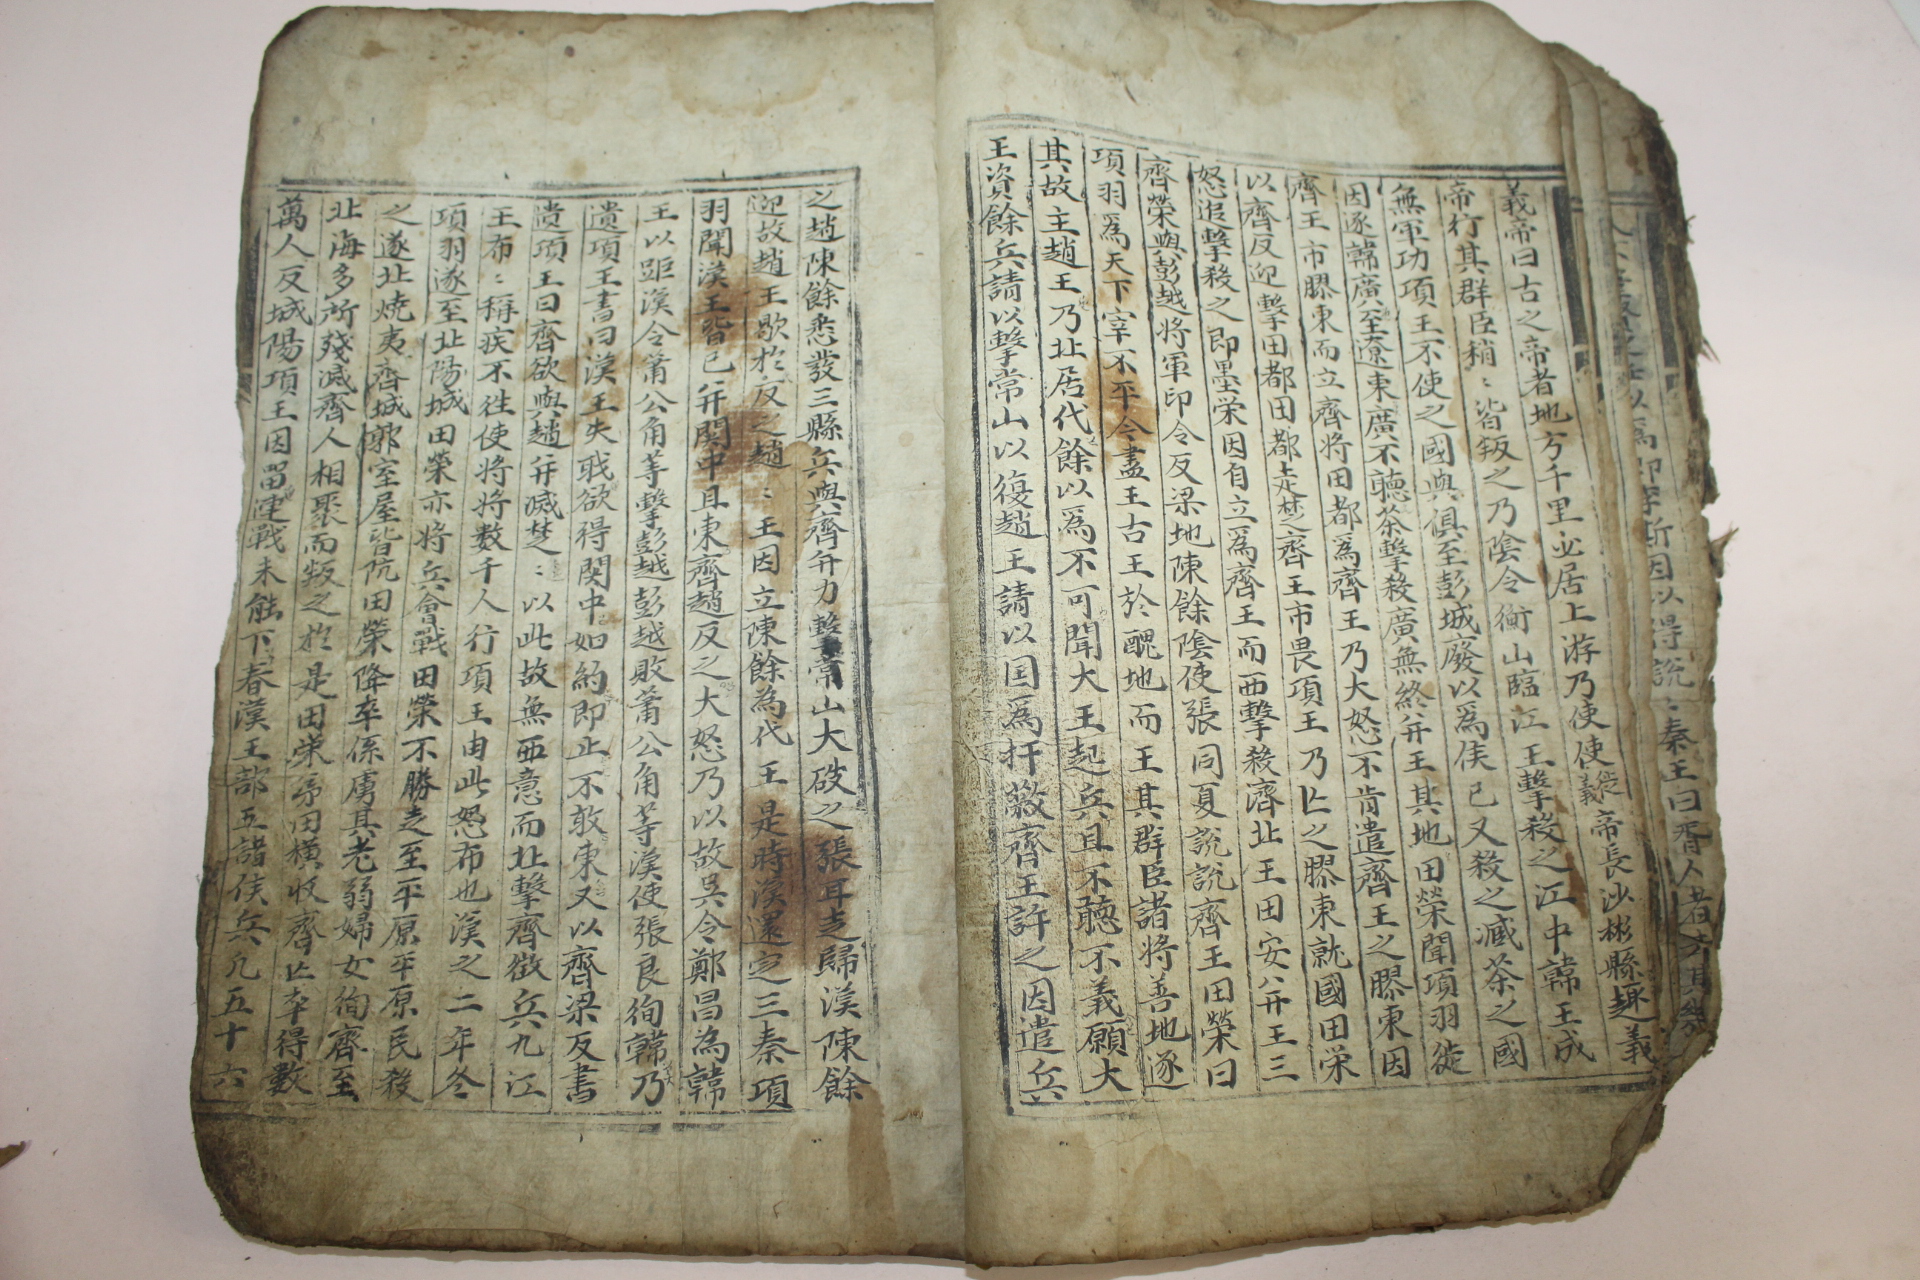 秦王曰胥人者
以爲郎李斯因以得說
義帝曰古之帝者地方千里必居上游乃使使徙義帝長沙郴縣趣義
帝行其群臣稍〻背叛之乃陰令衡山臨江王擊殺之江中韓王成
無軍功項王不使之國與俱至彭城廢以爲侯已又殺之臧荼之國
因逐韓廣至遼東廣不聽荼擊殺廣無終并王其地田榮聞項羽徙
齊王市膠東而立齊將田都爲齊王乃大怒不肯遣齊王之膠東因
以齊反迎擊田都田都走楚齊王市畏項王乃亡之膠東就國田栄
怒追擊殺之即墨栄因自立爲齊王而西擊殺濟北王田安并王三
齊榮與彭越將軍印令反梁地陳餘陰使張同夏說說齊王田榮曰
項羽爲天下宰不平今盡王古王於醜地而王其群臣諸將善地逐
其故主趙王乃北居代餘以爲不可聞大王起兵且不聽不義願大
王資餘兵請以擊常山以復趙王請以国爲扞蔽齊王許之因遣兵
之趙陳餘悉發三縣兵與齊并力擊常山大破之張耳走歸漢陳餘
迎故趙王歇於反之趙〻王因立陳餘為代王是時漢還定三秦項
羽聞漢王皆已并関中且東齊趙反之大怒乃以故吳令鄭昌為韓
王以距漢令蕭公角等擊彭越彭越敗蕭公角等漢使張良徇韓乃
遺項王書曰漢王失職欲得関中如約即止不敢東又以齊梁反書
遺項王曰齊欲與趙并滅楚〻以此故無西意而北擊齊徵兵九江
王布〻稱疾不往使將將數千人行項王由此怨布也漢之二年冬
項羽遂至北陽城田榮亦將兵會戰田榮不勝走至平原平原民殺
之遂北燒夷齊城郭室屋皆阬田榮降卒係虜其老弱婦女徇齊至
北海多所殘滅齊人相聚而叛之於是田栄弟田橫收齊亡卒得數
萬人反城陽項王因留連戰未能下春漢王部五諸侯兵凡五十六